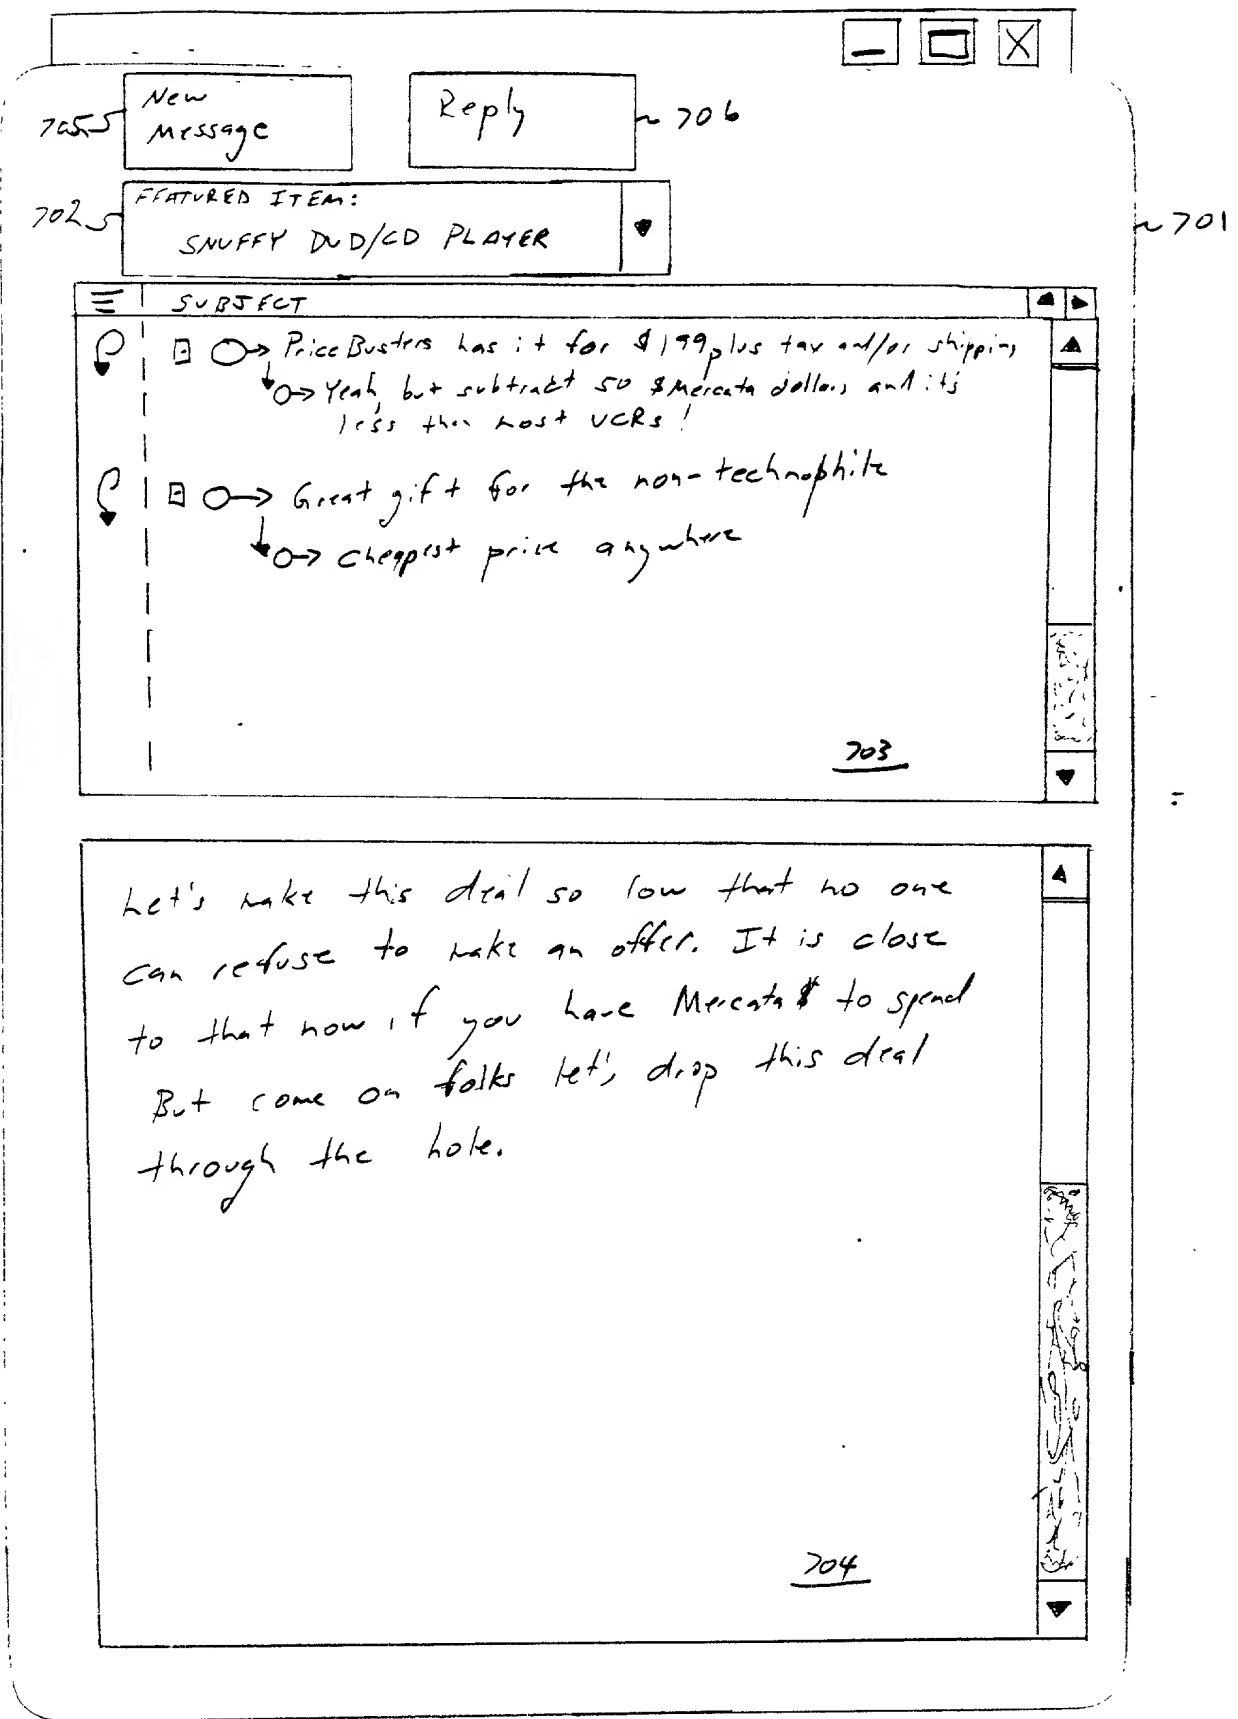 New
Message
705
Reply
706
FEATURED ITEM:
SNUFFY DVD/CD PLAYER
702
701
SUBJECT
PriceBusters has it for $199 plus tax and/or shipping
Yeah, but subtract 50 $Mercata dollars and it's
less then most VCRs!
Great gift for the non-technophile
cheapest price anywhere
703
Let's make this deal so low that no one
can refuse to make an offer. It is close
to that now if you have Mercata $ to spend
But come on folks let's drop this deal
through the hole.
704